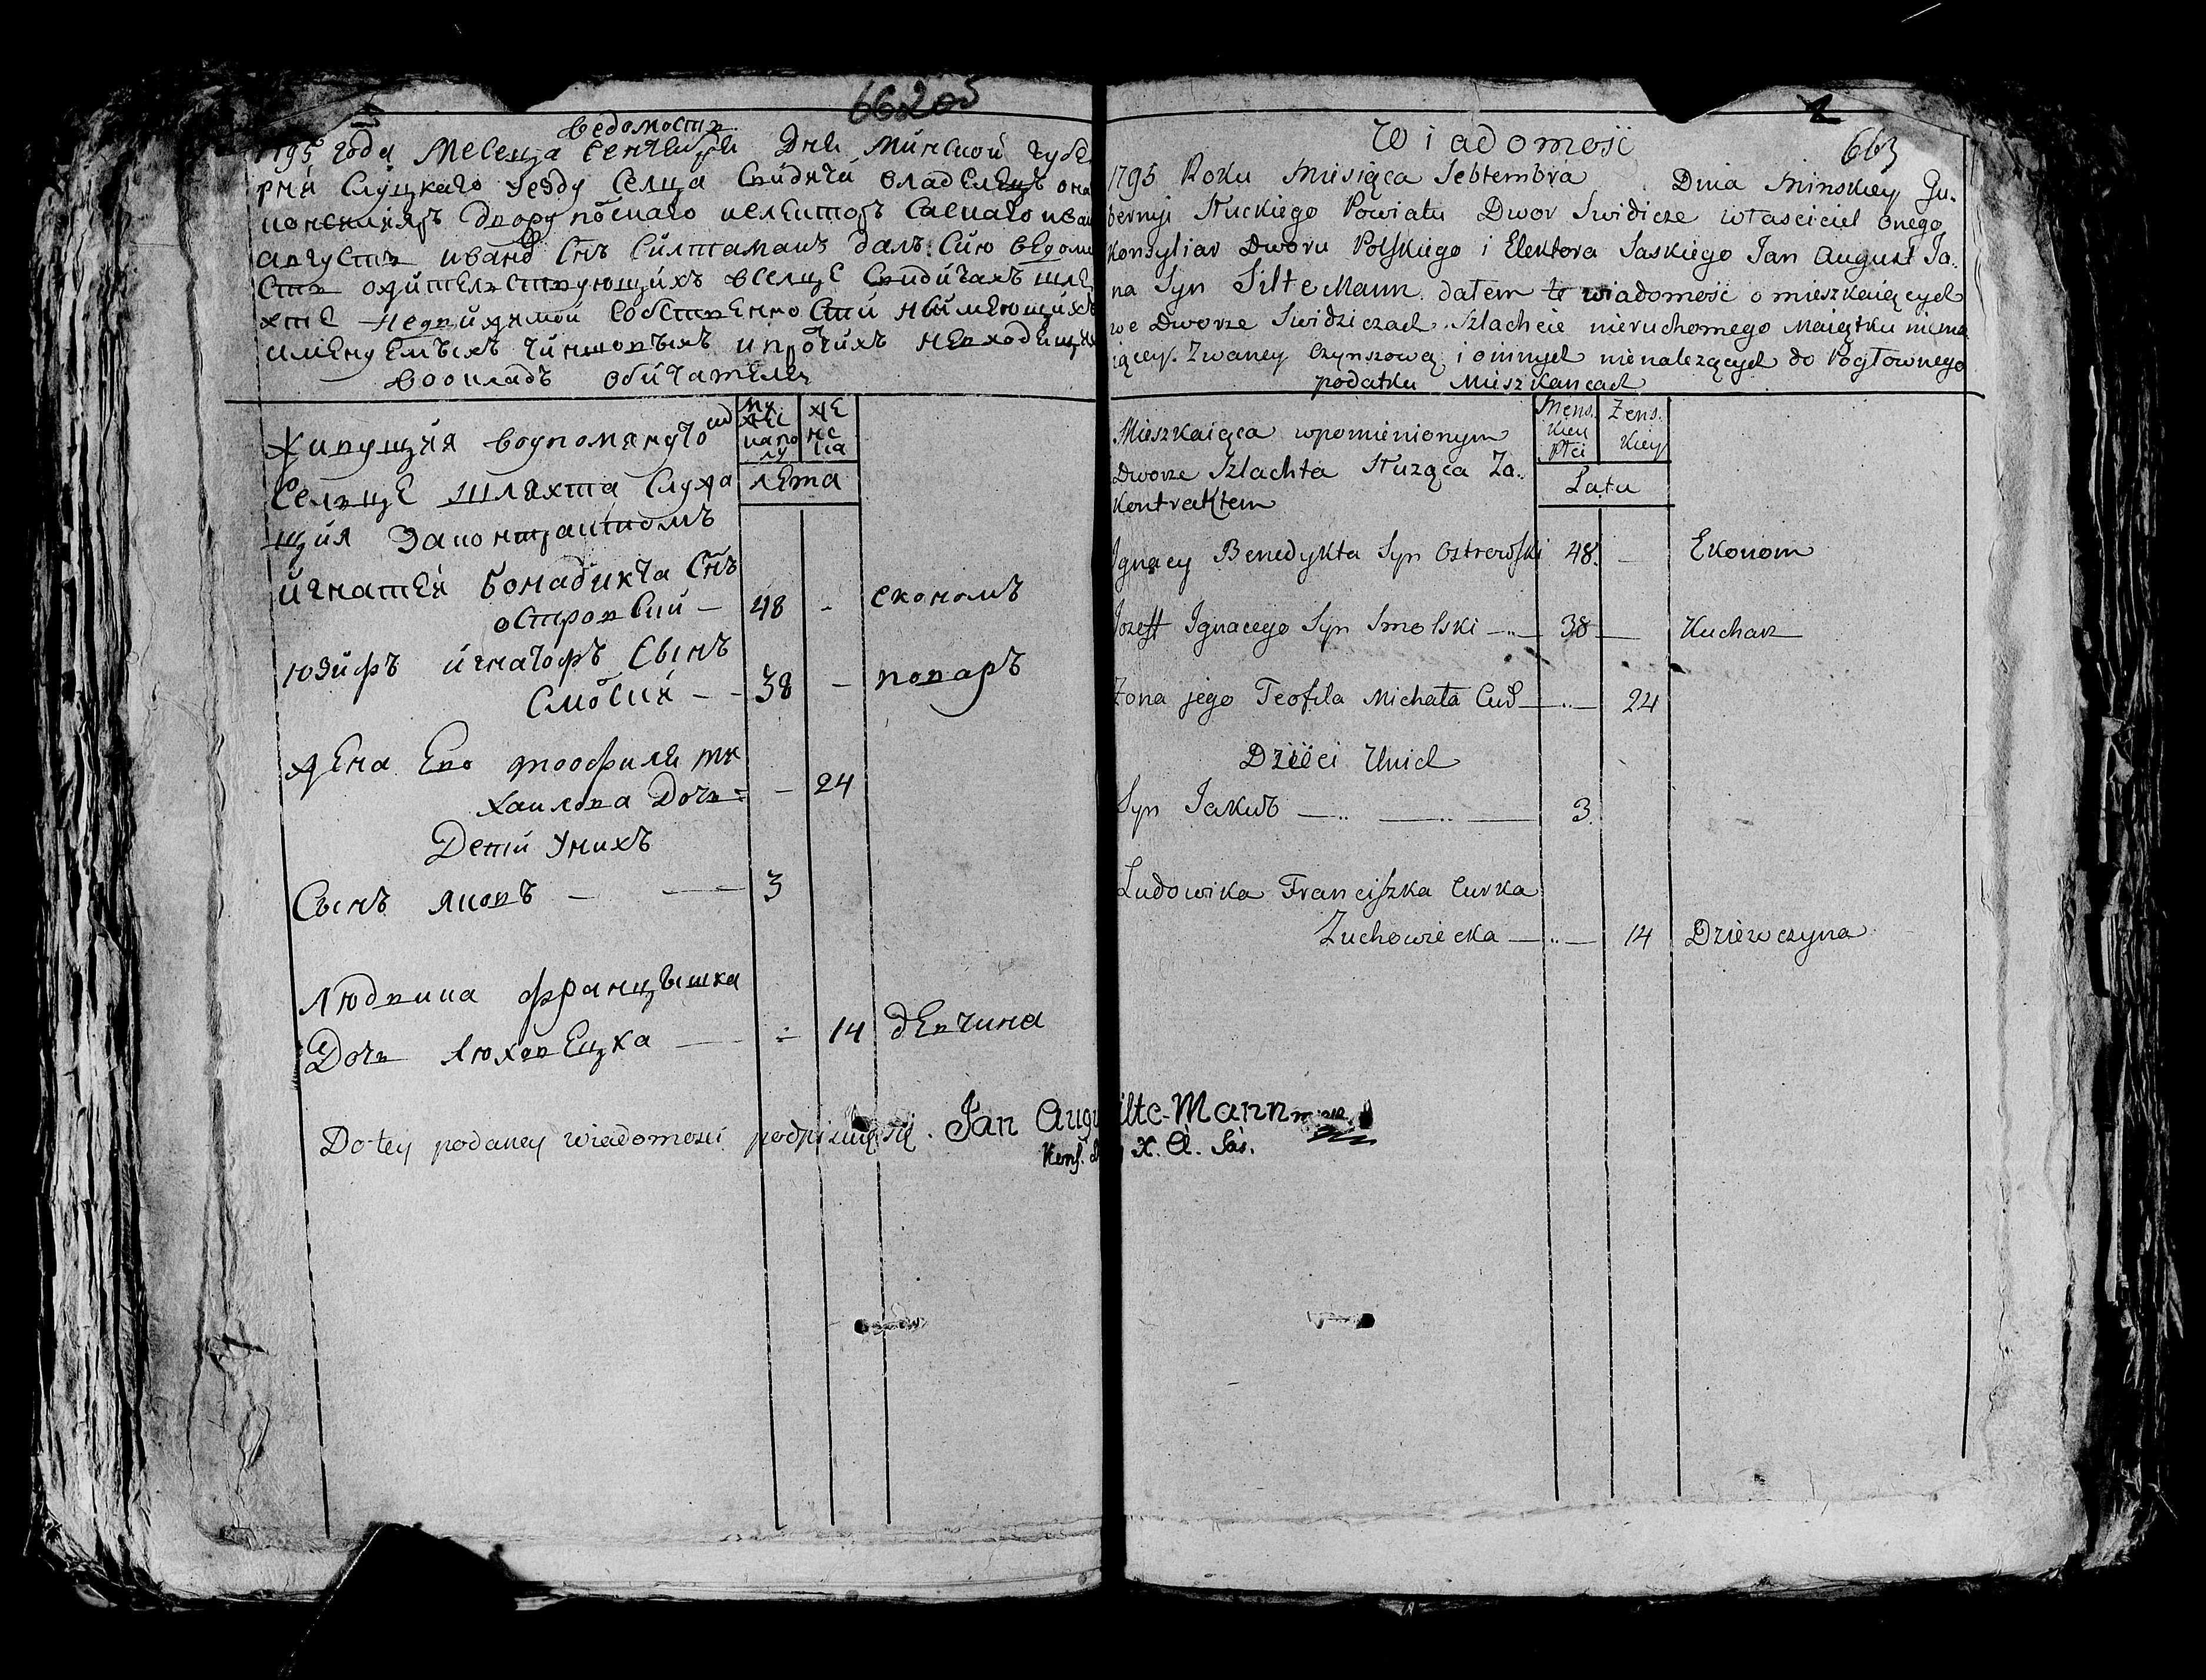 662об
Ведомость
1795 года Месеца Сентебря Дня Минской губе
рнй Слуцкаго уезду Селца Свидичй владелецъ она
консиляръ двору полскаго иелекторъ саскаго иван
августъ ивана Снъ Силтаманъ далъ Сию ведомо
сть ожителствующйхъ вселце Свидичахъ шле
хте недвйжимой собственностй неймеющйхъ
именуемыхъ чйншовыхъ ипрочйхъ невходещихъ
вооклад обйчателя
Живущйя воупомянутом
Селце шляхта Служа
щйя Законтрактомъ
му
жес
капо
лу
же
нс
ка
лета
йгнатей бонадикта Снъ
островский – 48 - економъ
юзйфъ йгнатофъ Сынъ
Смолский – - 38 – поваръ
Жена Ево теофиля ми
хаилова Дочь = – 24
Детй Унихъ
Сынъ яковъ – — 3
Людвика францышка
Дочь Люховецка — ÷ 14 девчина
Do tey podaney wiadomosci podpisuię się. Jan Aug
Konſ.
4
663
Wiadomość
1795 Roku Miesiąca Sebtembra Dnia Minskiey Gu.
bernyi Słuckiego Powiatu Dwor Swidicze własciciel onego
Konsyliar Dworu Polſkiego i Elektora Saskiego Jan August Ja..
na Syn SilteMann. dałem tę wiadomość o mieszkaiących
we Dworze Swidziczach. Szlachcie nieruchomego Maiątku niema
iącey. Zwaney Czynszową i oinnych nienalezących do Pogłownego
podatku Mieszkancach
Mieszkaiąca wpomienionym
Dworze Szlachta Służąca Za..
Kontraktem
Męns.
kiey
Płci
Zens.
kiey
Latu
Ignacy Benedykta Syn Ostrowſki 48. — Ekonom
Jozeff Ignacego Syn Smolski —..— 38 — Kucharz
Zona jego Teofila Michała Cur —..— 24
Dzieci Unich
Syn Jakub —.. —..— 3.
Ludowika Franciſzka Curka
Zuchowiecka —..— 14 Dziewczyna
ilte-Mann
X. El. Sas.